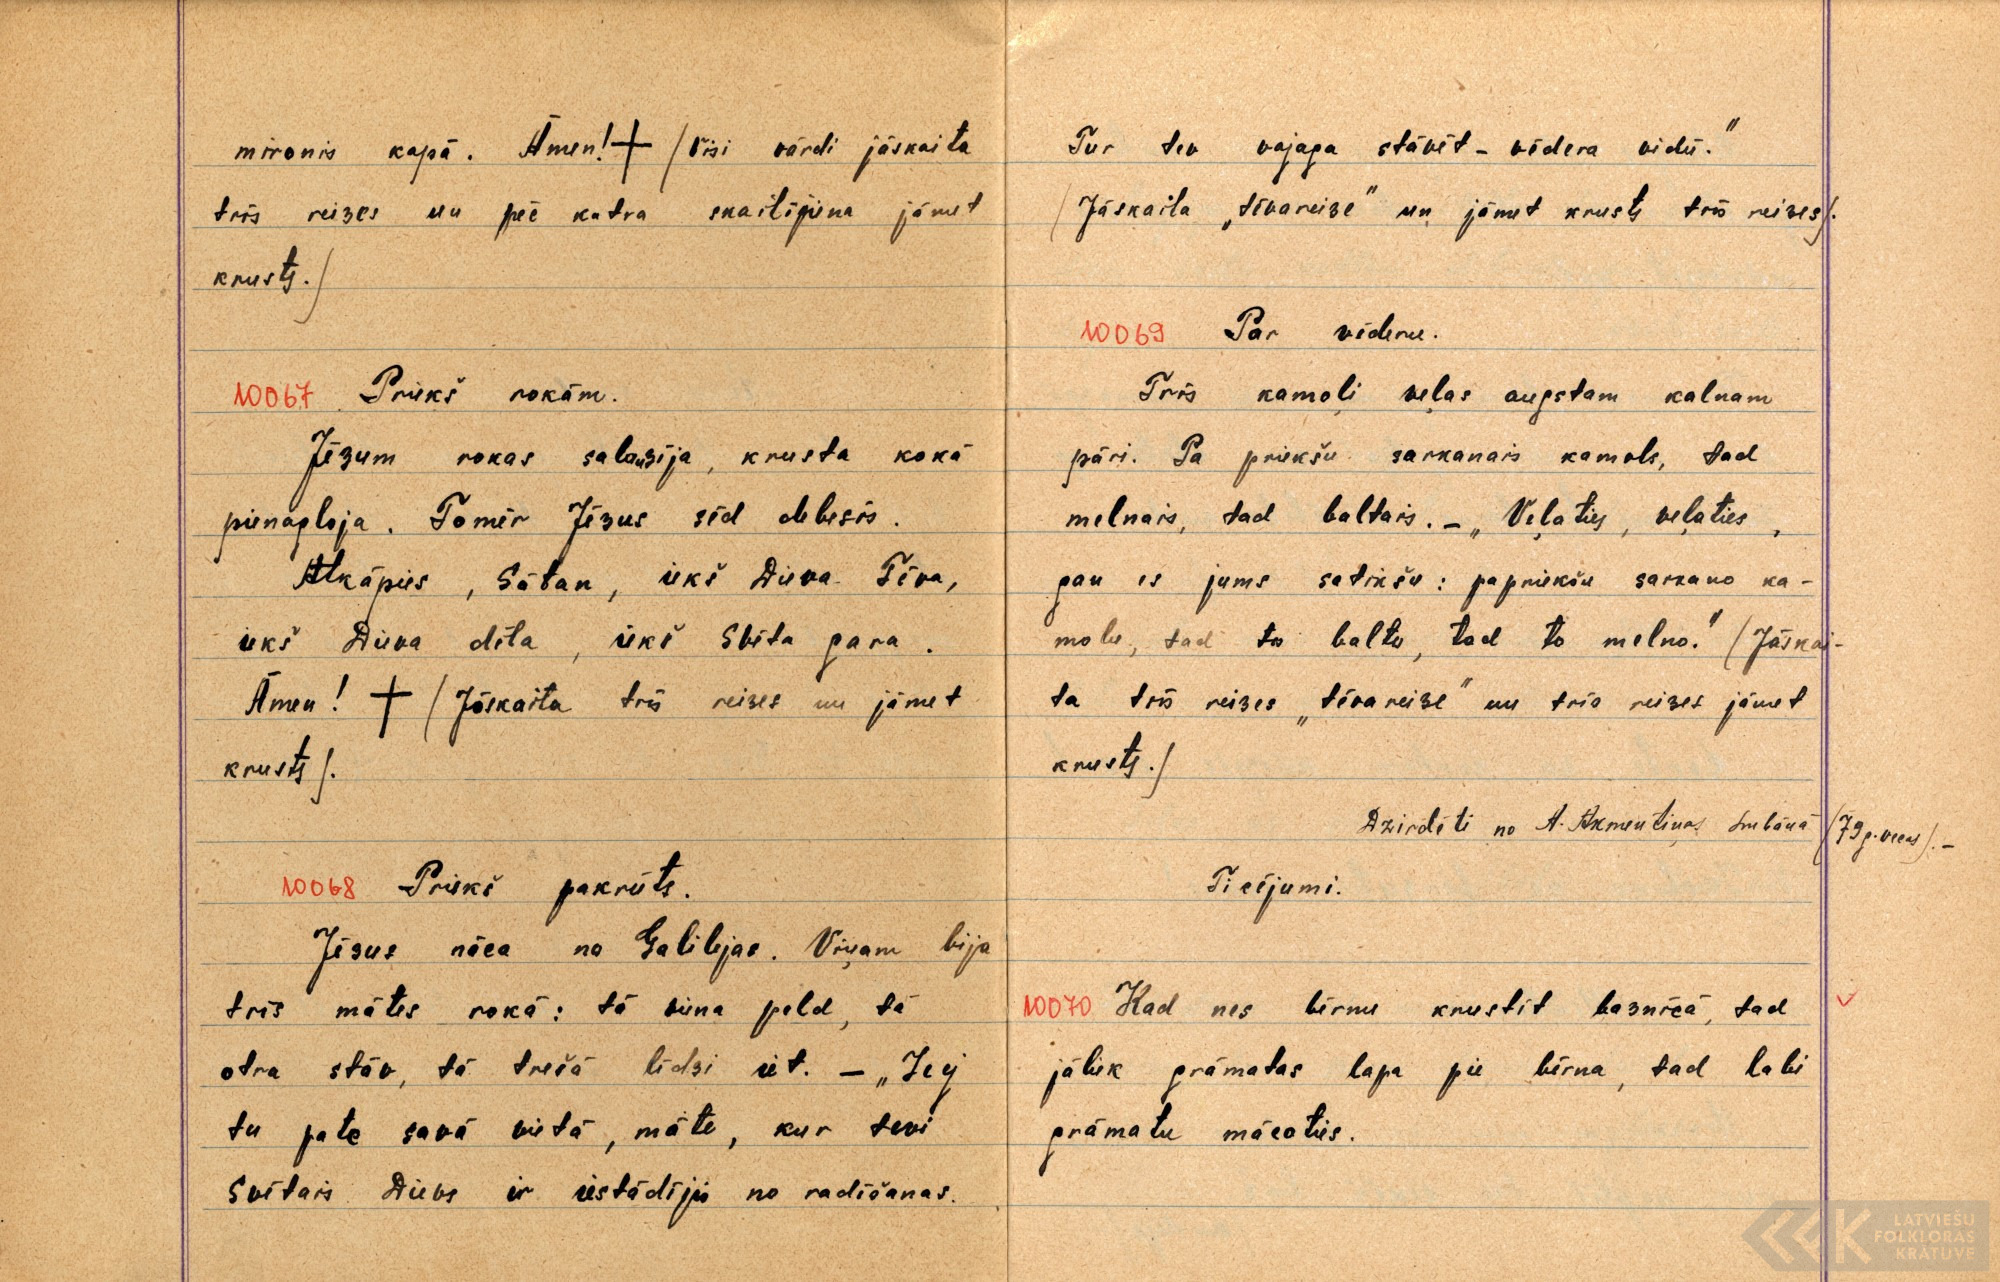 mironis kapā. Āmen! + (Visi vārdi jāskaita
trīs reizes un pēc katra skaitījiena jāmet
krusts.)
10067 Priekš rokām.
Jēzum rokas salauzīja, krusta kokā
pienagloja. Tomēr Jēzus sēd debesīs.
Atkāpies, Sātan, iekš Dieva Tēva,
iekš Dieva dēla, iekš Svēta gara.
Āmen! + (Jāskaita trīs reizes un jāmet
krusts).
10068 Priekš pakrūts.
Jēzus nāca no Galilejas. Viņam bija
trīs mātes rokā: tā viena peld, tā
otra stāv, tā trešā līdzi iet. – „Iej
tu pate savā vietā, māte, kur tevi
Svētais Dievs ir iestādījis no radīšanas.
Tur tev vajaga stāvēt – vēdera vidū."
(Jāskaita „tēvareize" un jāmet krusts trīs reizes).
10069 Par vēderu.
Trīs kamoļi veļas augstam kalnam
pāri. Pa priekšu sarkanais kamols, tad
melnais, tad baltais. – „Veļaties, veļaties,
gan es jums satikšu: papriekšu sarkano ka-
molu, tad to balto, tad to melno." (Jāskai-
ta trīs reizes „tēvareize" un trīs reizes jāmet
krusts.)
Dzirdēti no A. Akmentiņas Lubānā (79 g. vecas). –
Ticējumi.
10070 Kad nes bērnu krustīt baznīcā, tad
jāliek grāmatas lapa pie bērna, tad labi
grāmatu mācoties.
LATVIEŠU
FOLKLORAS
KRĀTUVE